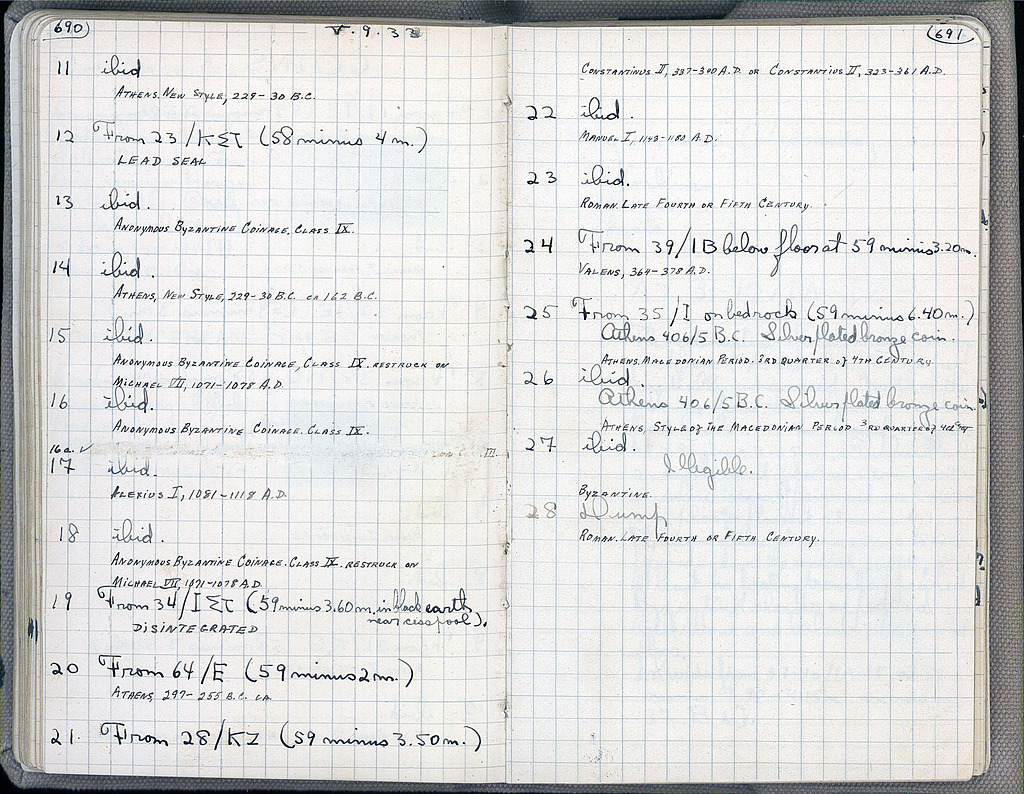 690
V.9.33
11 ibid
ATHENS. NEW STYLE, 229-30 B.C.
12 From 23/ΚΣΤ (58 minus 4m.)
LEAD SEAL
13 ibid.
ANONYMOUS BYZANTINE COINAGE. CLASS IX.
14 ibid.
ATHENS, NEW STYLE, 229-30 B.C. ca 162 B.C.
15 ibid.
ANONYMOUS BYZANTINE COINAGE, CLASS IX. RESTRUCK ON
MICHAEL VII, 1071-1078 A.D.
16 ibid.
ANONYMOUS BYZANTINE COINAGE. CLASS IX.
16a. ✓
17 ibid.
ALEXIUS I, 1081-1118 A.D.
18 ibid.
ANONYMOUS BYZANTINE COINAGE. CLASS IX. RESTRUCK ON
MICHAEL VII, 1071-1078 A.D.
19 From 34/ΙΣΤ (59 minus 3.60m. in black earth
near cesspool).
DISINTEGRATED
20 From 64/E (59 minus 2m.)
ATHENS, 297-255 B.C. ca
21. From 28/KZ (59 minus 3.50m.)
691
CONSTANTINUS II, 337-340 A.D. OR CONSTANTIUS II, 323-361 A.D.
22 ibid.
MANUEL I, 1143-1180 A.D.
23 ibid.
ROMAN. LATE FOURTH OR FIFTH CENTURY.
24 From 39/IB below floor at 59 minus 3.20m.
VALENS, 364-378 A.D.
25 From 35/I on bedrock (59 minus 6.40m.)
Athens 406/5 B.C. Silver plated bronze coin.
ATHENS. MACEDONIAN PERIOD. 3RD QUARTER of 4TH CENTURY.
26 ibid.
Athens 406/5 B.C. Silver plated bronze coin.
ATHENS, STYLE of THE MACEDONIAN PERIOD 3RD QUARTER of 4th
27 ibid.
Illegible.
BYZANTINE.
28 Dump
ROMAN. LATE FOURTH OR FIFTH CENTURY.